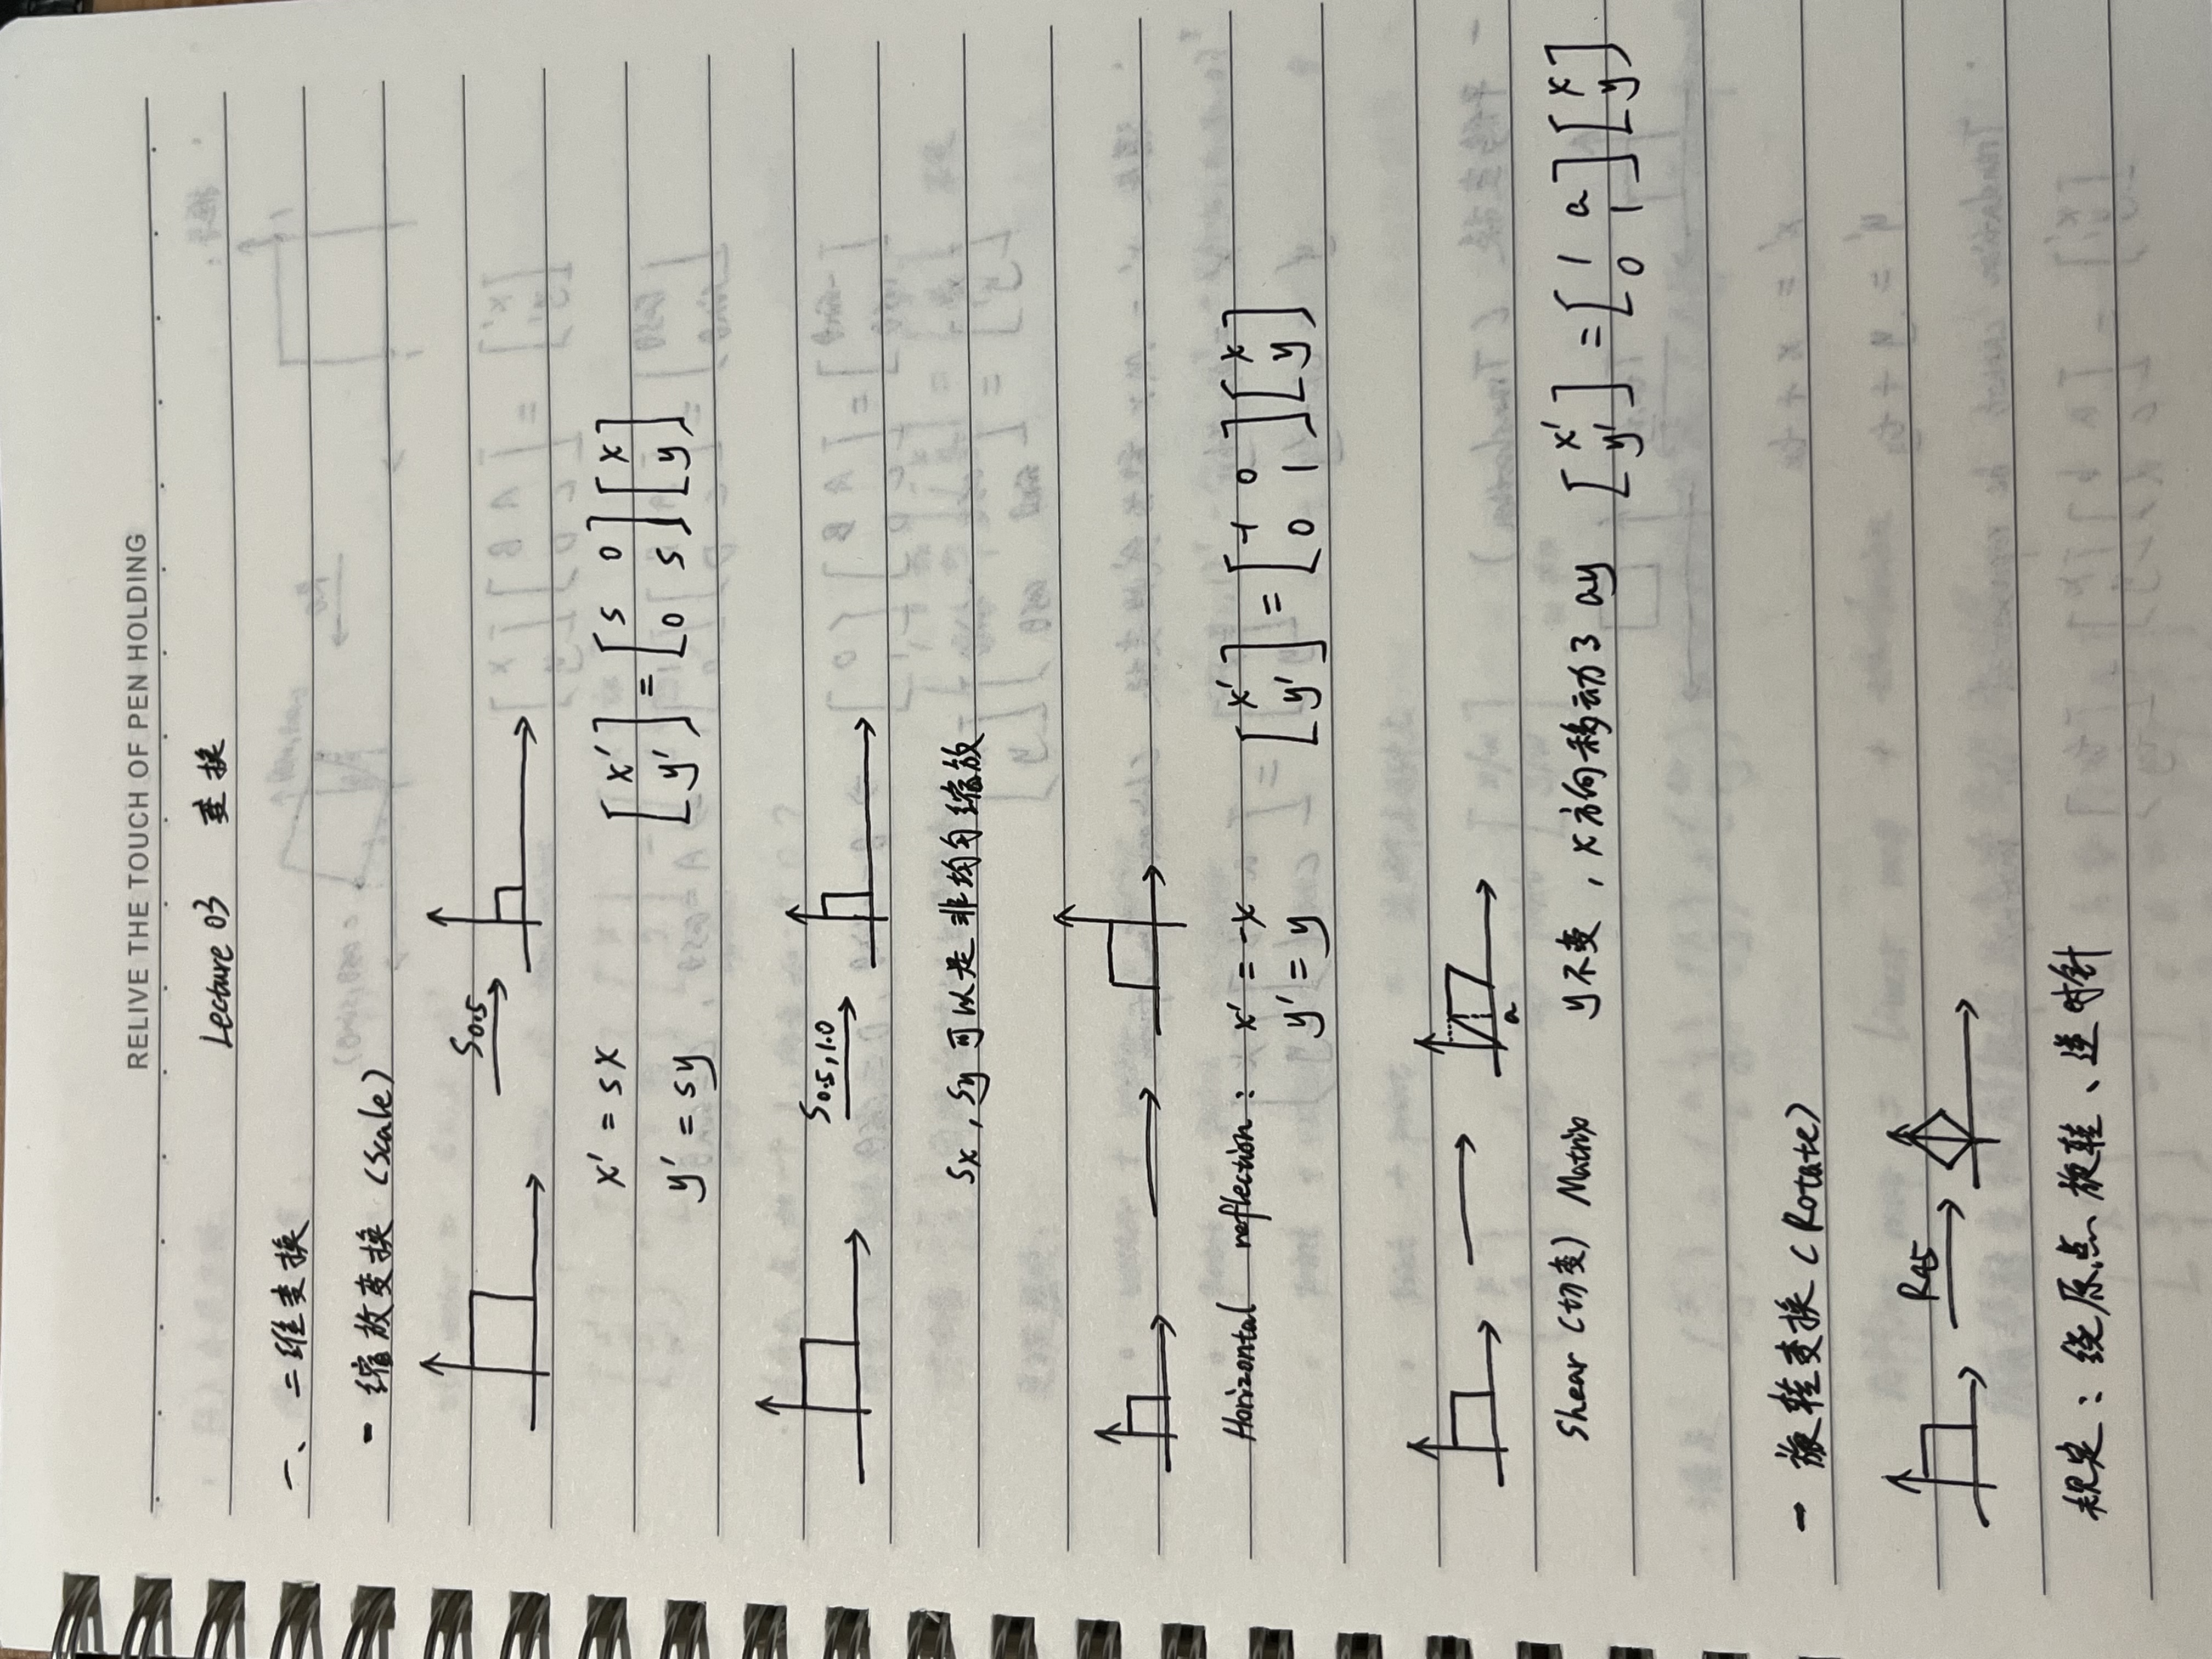 RELIVE THE TOUCH OF PEN HOLDING
Lecture 03 变换
一、二维变换
- 缩放变换 (Scale)
S0.5
x' = sx
y' = sy
[x' y'] = [s 0 0 s][x y]
S0.5,1.0
Sx, Sy 可以是非均匀缩放
Horizontal reflection: x' = -x
y' = y
[x' y'] = [-1 0 0 1][x y]
a
Shear (切变) Matrix y不变, x方向移动了 ay [x' y'] = [1 a 0 1][x y]
- 旋转变换 (Rotate)
R45
规定: 绕原点旋转、逆时针